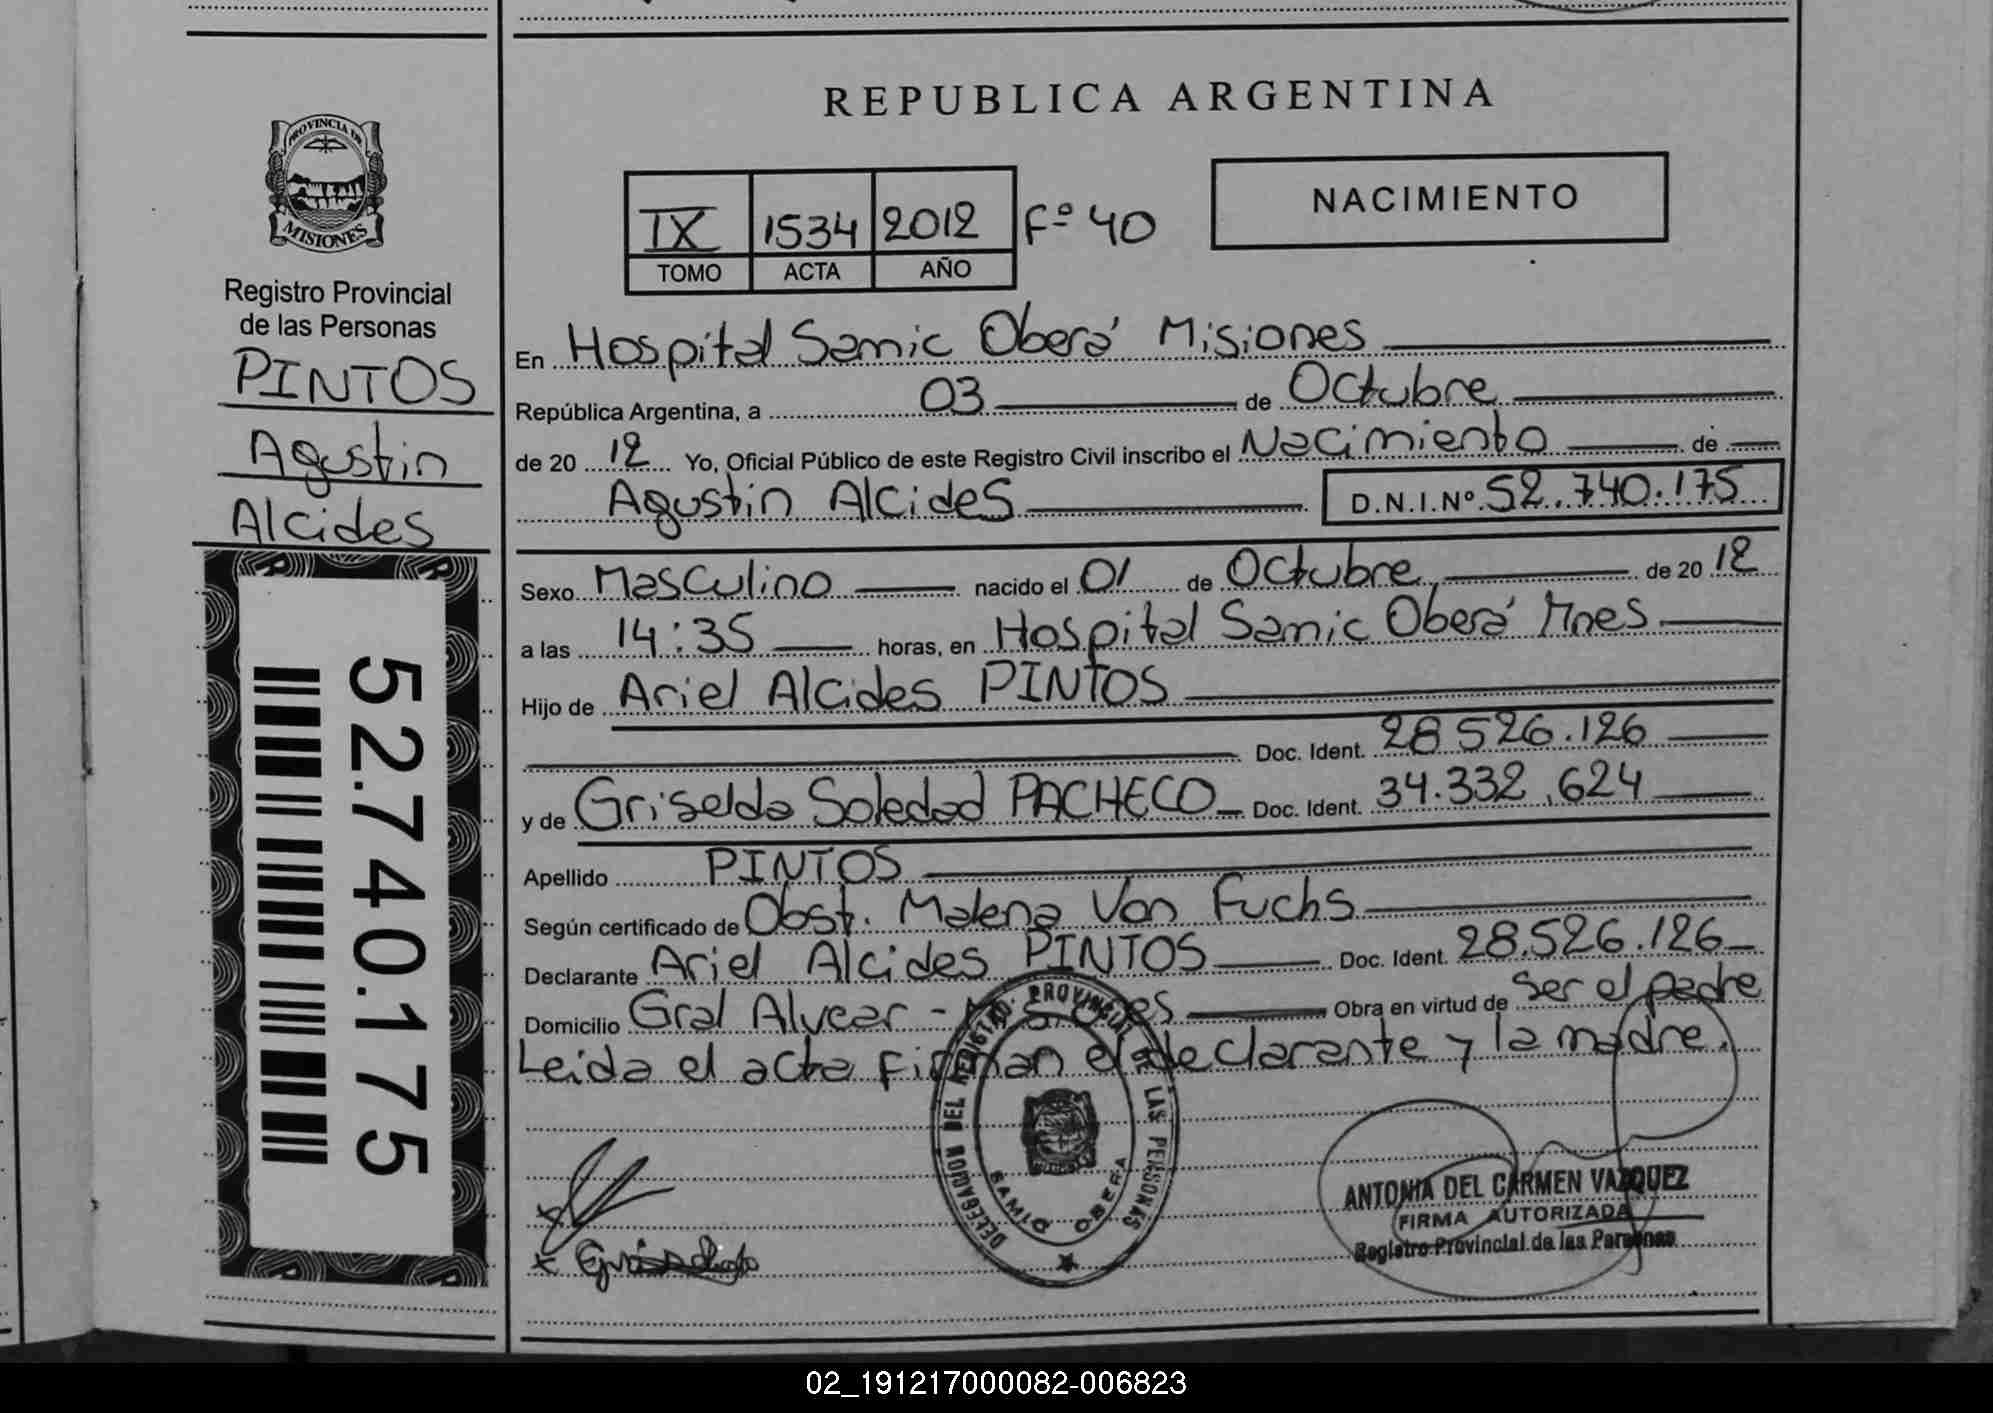 PROVINCIA DE
MISIONES
Registro Provincial
de las Personas
PINTOS
Agustin
Alcides
52.740.175
REPUBLICA ARGENTINA
IX 1534 2012 Fº 40
TOMO ACTA AÑO
NACIMIENTO
En Hospital Samic Oberá Misiones
República Argentina, a 03 de Octubre
de 20 12 Yo, Oficial Público de este Registro Civil inscribo el Nacimiento de
Agustin Alcides D.N.I.Nº 52.740.175
Sexo Masculino nacido el 01 de Octubre de 20 12
a las 14:35 horas, en Hospital Samic Oberá Mnes
Hijo de Ariel Alcides PINTOS
Doc. Ident. 28 526.126
y de Griselda Soledad PACHECO Doc. Ident. 34.332.624
Apellido PINTOS
Según certificado de Obst. Malena Von Fuchs
Declarante Ariel Alcides PINTOS Doc. Ident. 28.526.126
Domicilio Gral Alvear - Obra en virtud de ser el padre
Leida el acta firman el declarante y la madre.
DELEGACION DEL REGISTRO PROVINCIAL DE LAS PERSONAS
SAMIC OBERA
ANTONIA DEL CARMEN VAZQUEZ
FIRMA AUTORIZADA
Registro Provincial de las Personas
02_191217000082-006823